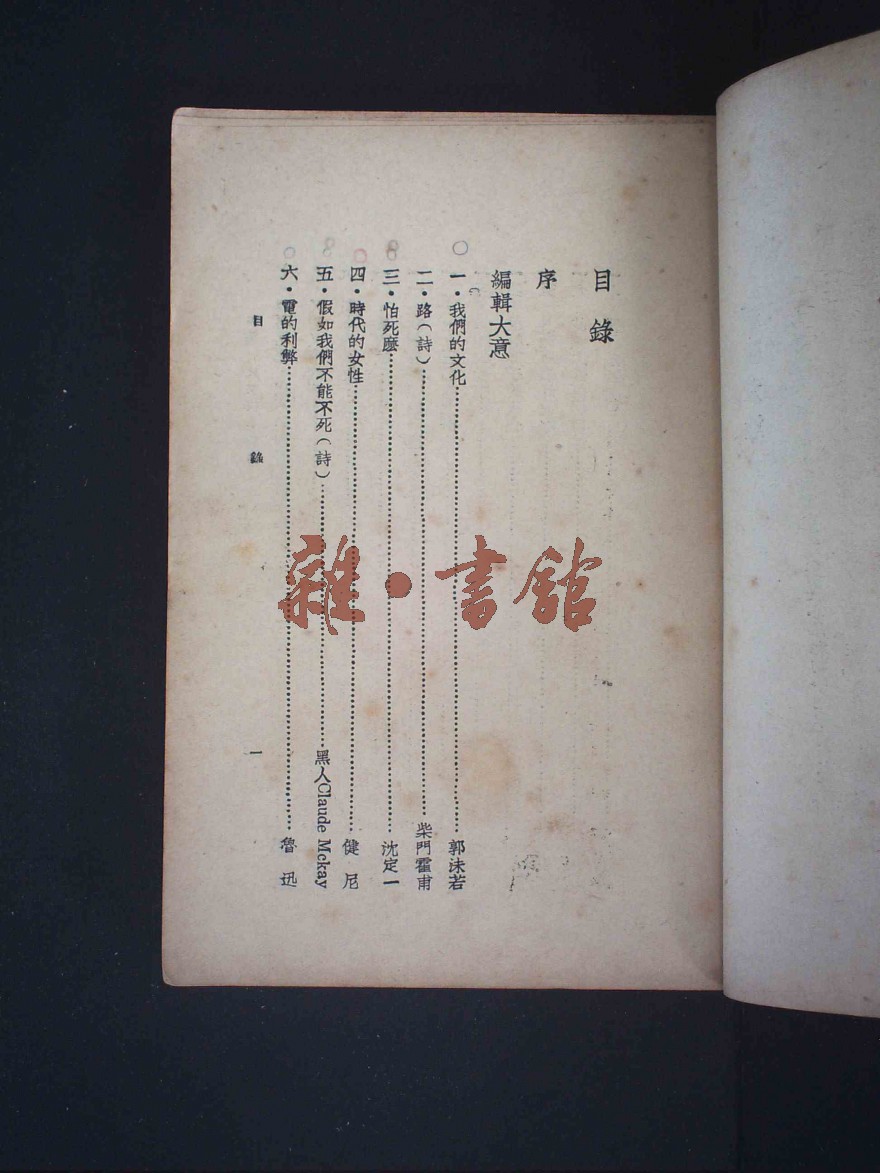 目錄
序
編輯大意
一·我們的文化……郭沫若
二·路（詩）……柴門霍甫
三·怕死麼……沈定一
四·時代的女性……健尼
五·假如我們不能不死（詩）……黑人Claude Mckay
六·電的利弊……魯迅
目錄 一
雜·書館